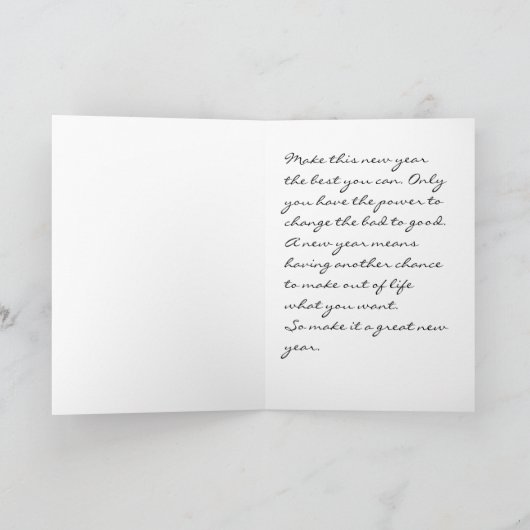 Make this new year
the best you can. Only
you have the power to
change the bad to good.
A new year means
having another chance
to make out of life
what you want.
So make it a great new
year.